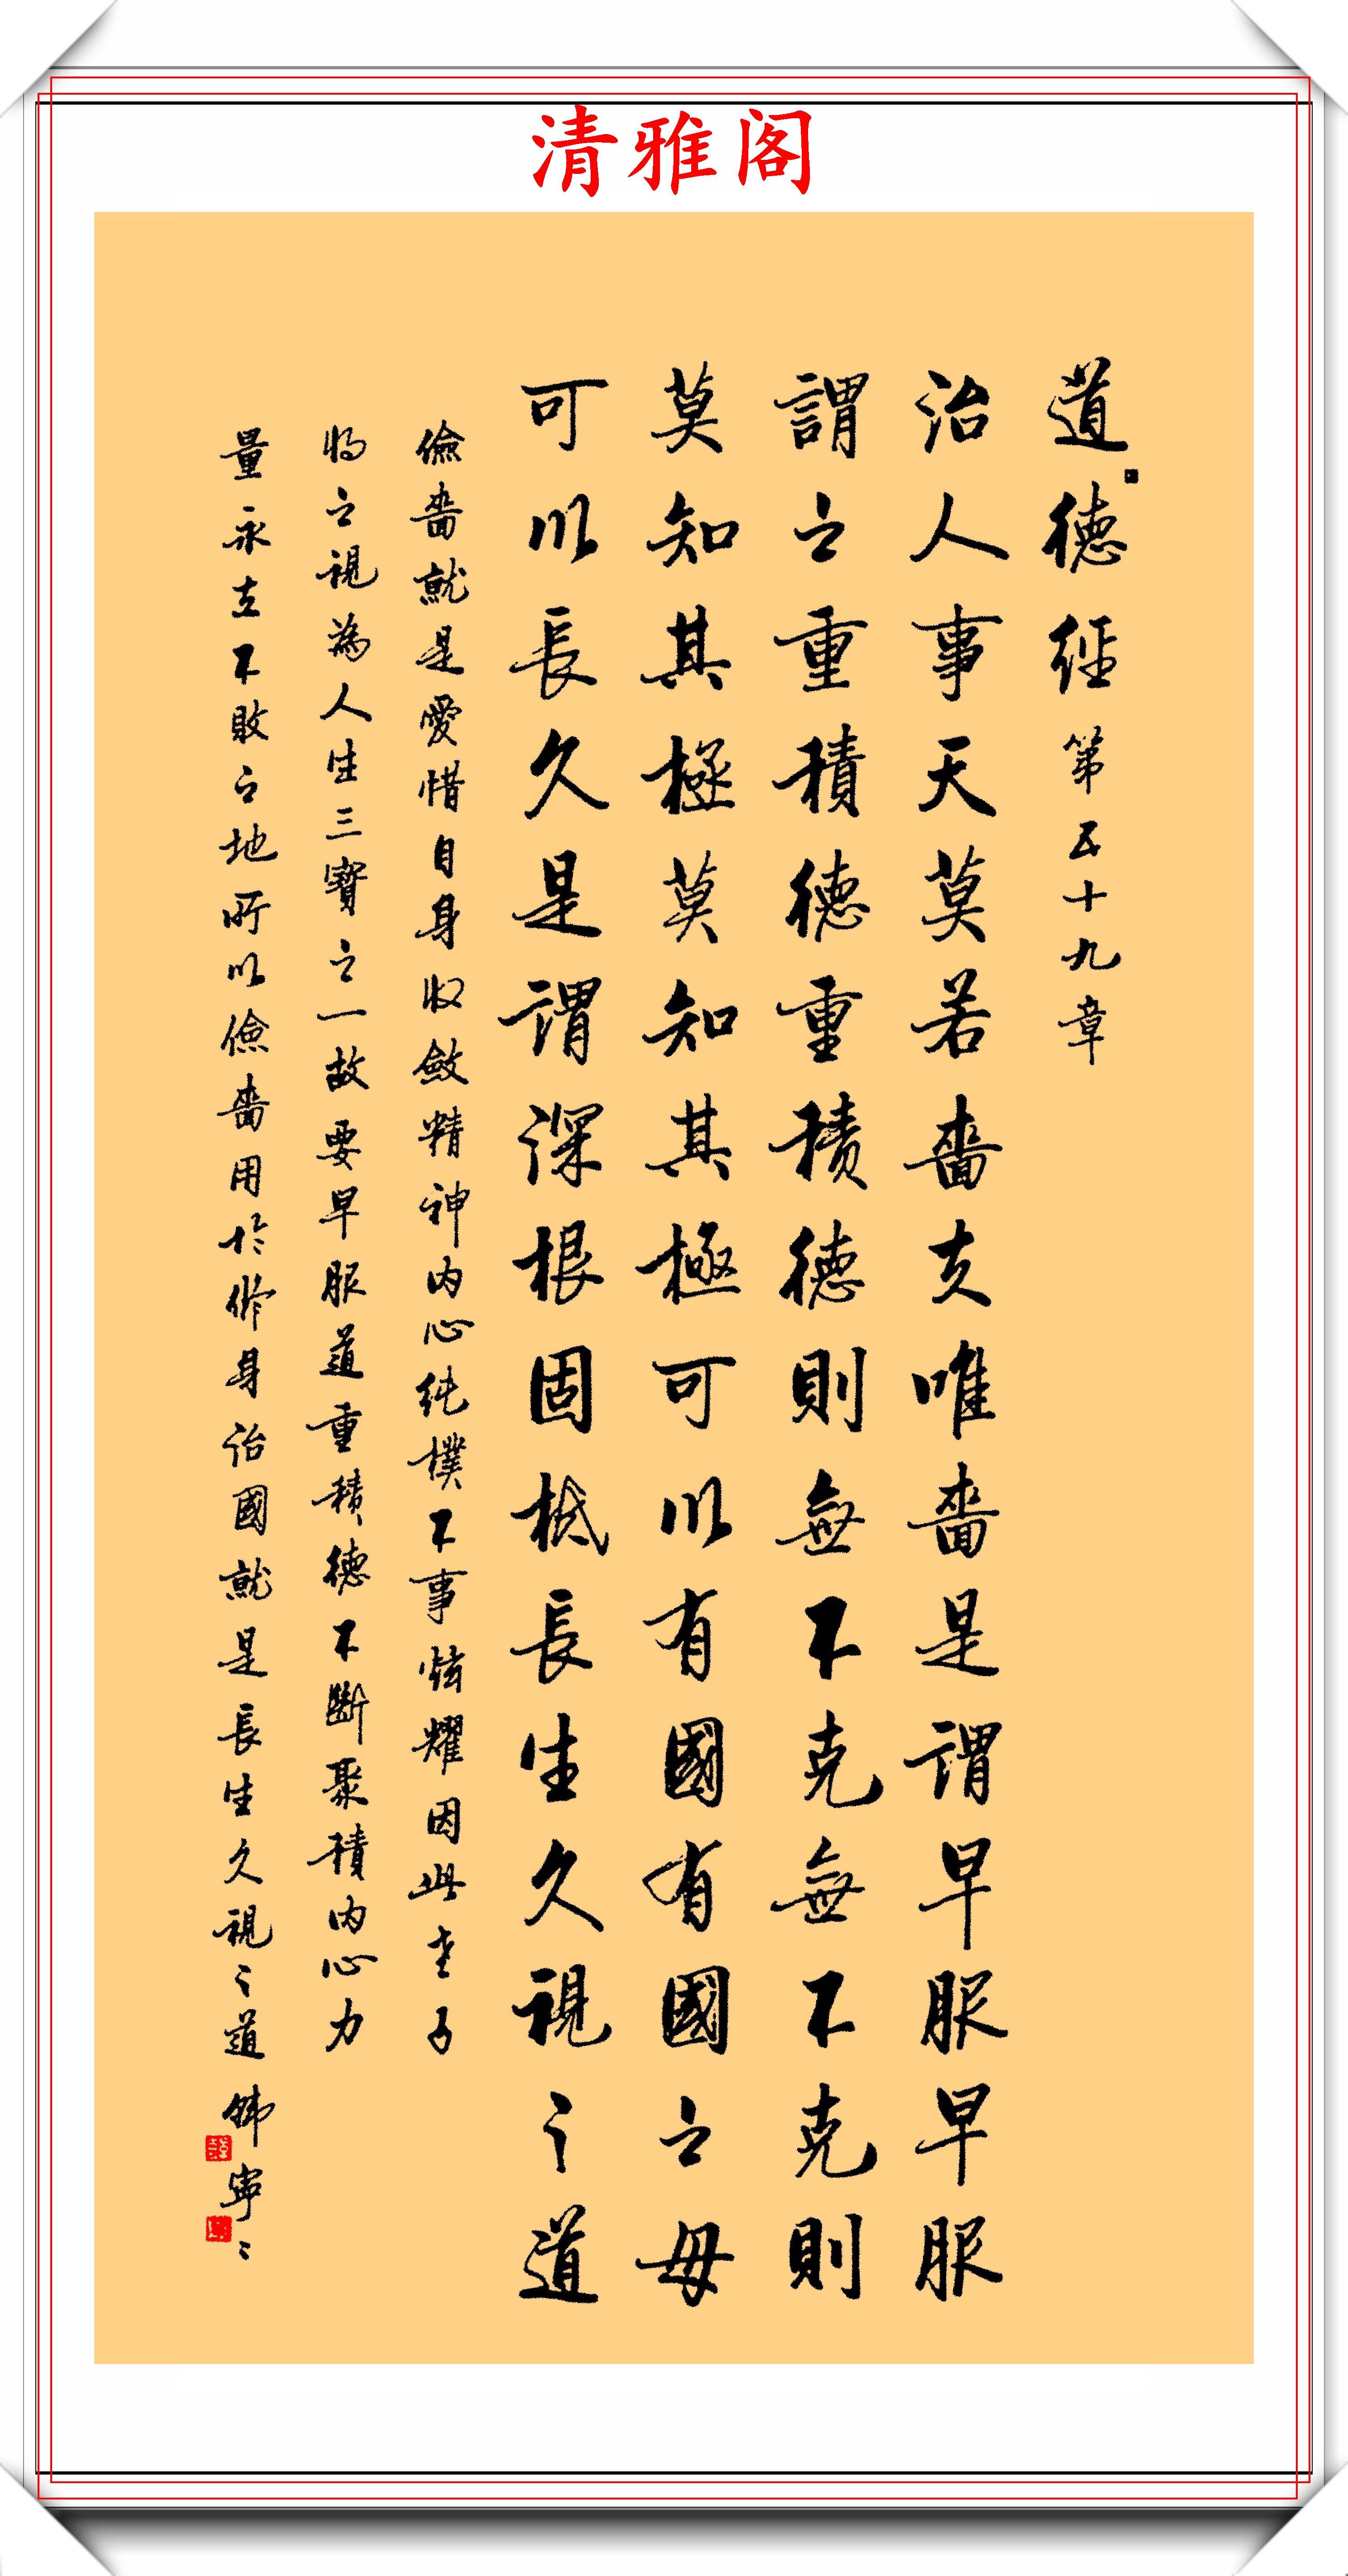 清雅阁
道德經第五十九章
治人事天莫若嗇夫唯嗇是謂早服早服
謂之重積德重積德則無不克無不克則
莫知其極莫知其極可以有國有國之母
可以長久是謂深根固柢長生久視之道
儉嗇就是愛惜自身收斂精神内心純樸不事炫耀因此老子
將之視為人生三寶之一故要早服道重積德不斷聚積内心力
量永立不敗之地所以儉嗇用於修身治國就是長生久視之道